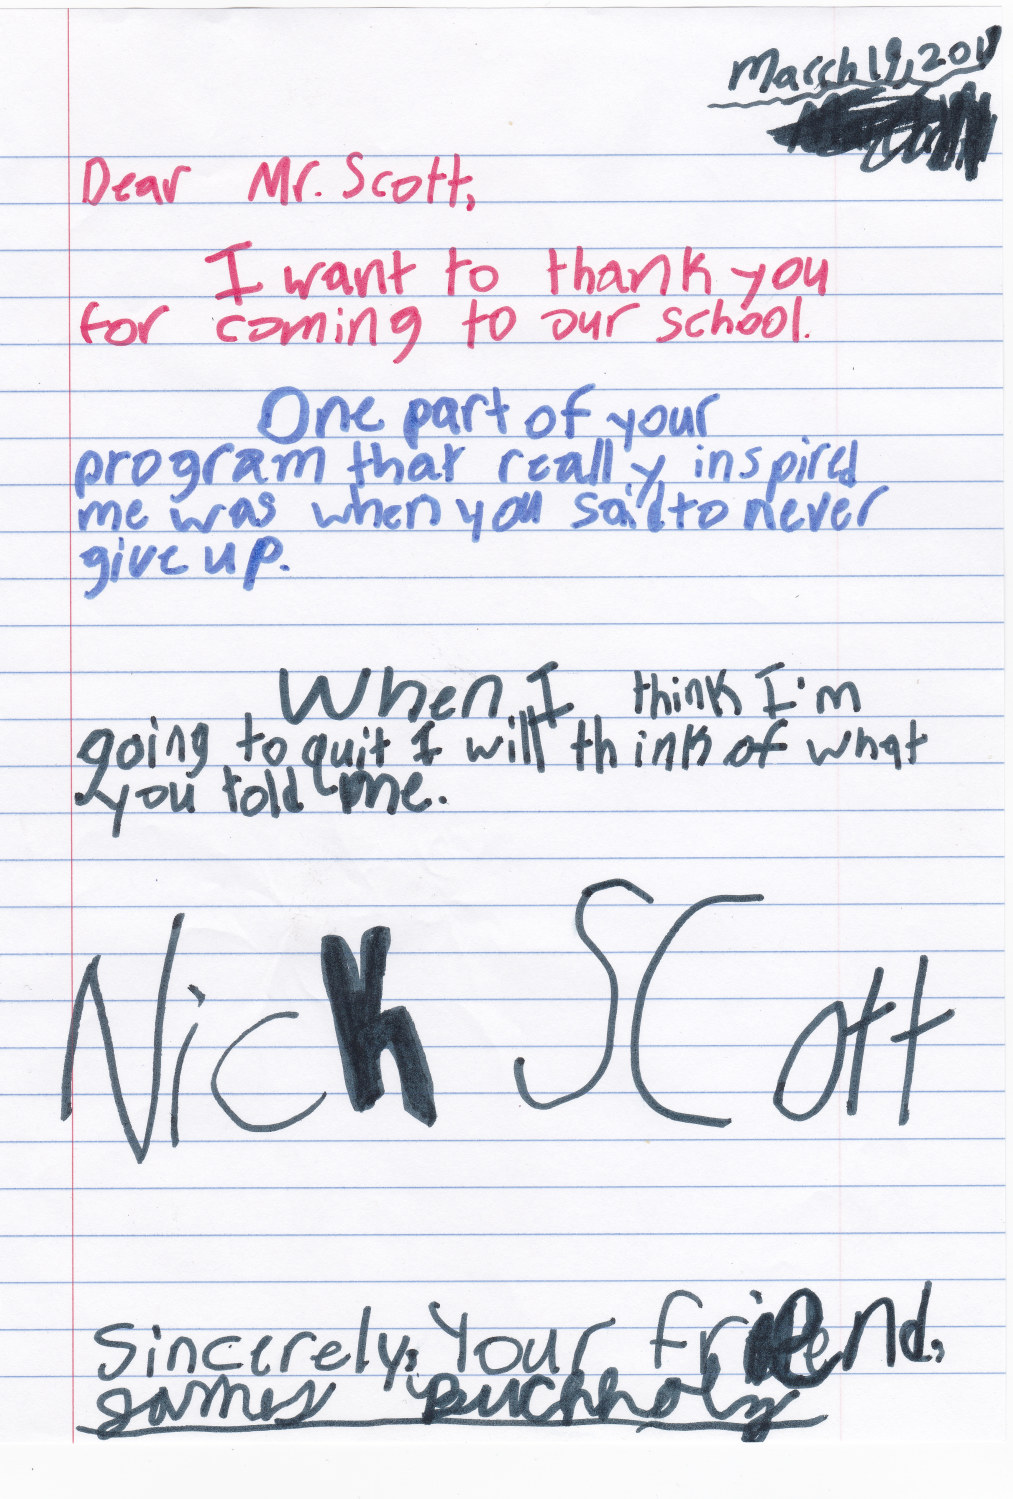 March 19, 2011
Dear Mr. Scott,
I want to thank you
for coming to our school.
One part of your
program that really inspired
me was when you said to never
give up.
When I think I'm
going to quit I will think of what
you told me.
Nick SCott
Sincerely, Your friend,
James Buchholz